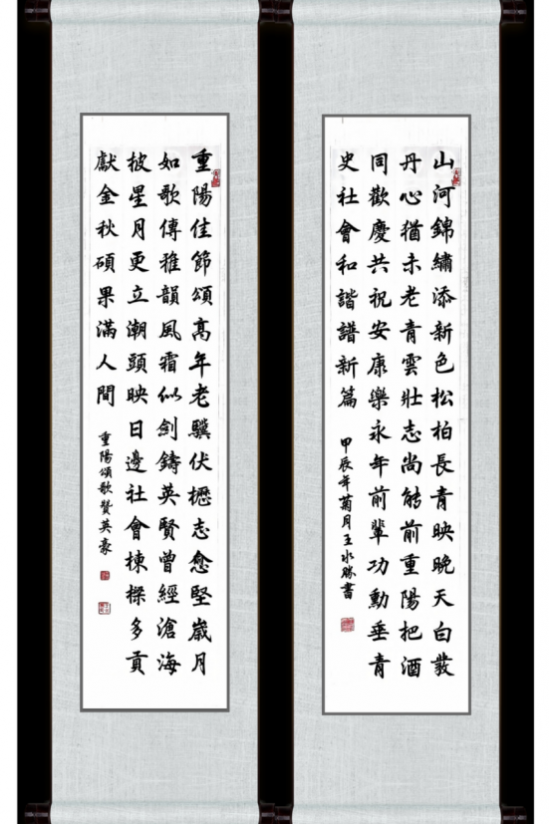 重陽佳節頌高年老驥伏櫪志愈堅歲月
如歌傳雅韻風霜似劍鑄英賢曾經滄海
披星月更立潮頭映日邊社會棟樑多貢
獻金秋碩果滿人間
重陽頌歌贊英豪
山河錦繡添新色松柏長青映晚天白髮
丹心猶未老青雲壯志尚能前重陽把酒
同歡慶共祝安康樂永年前輩功勳垂青
史社會和諧譜新篇
甲辰年菊月王水勝書